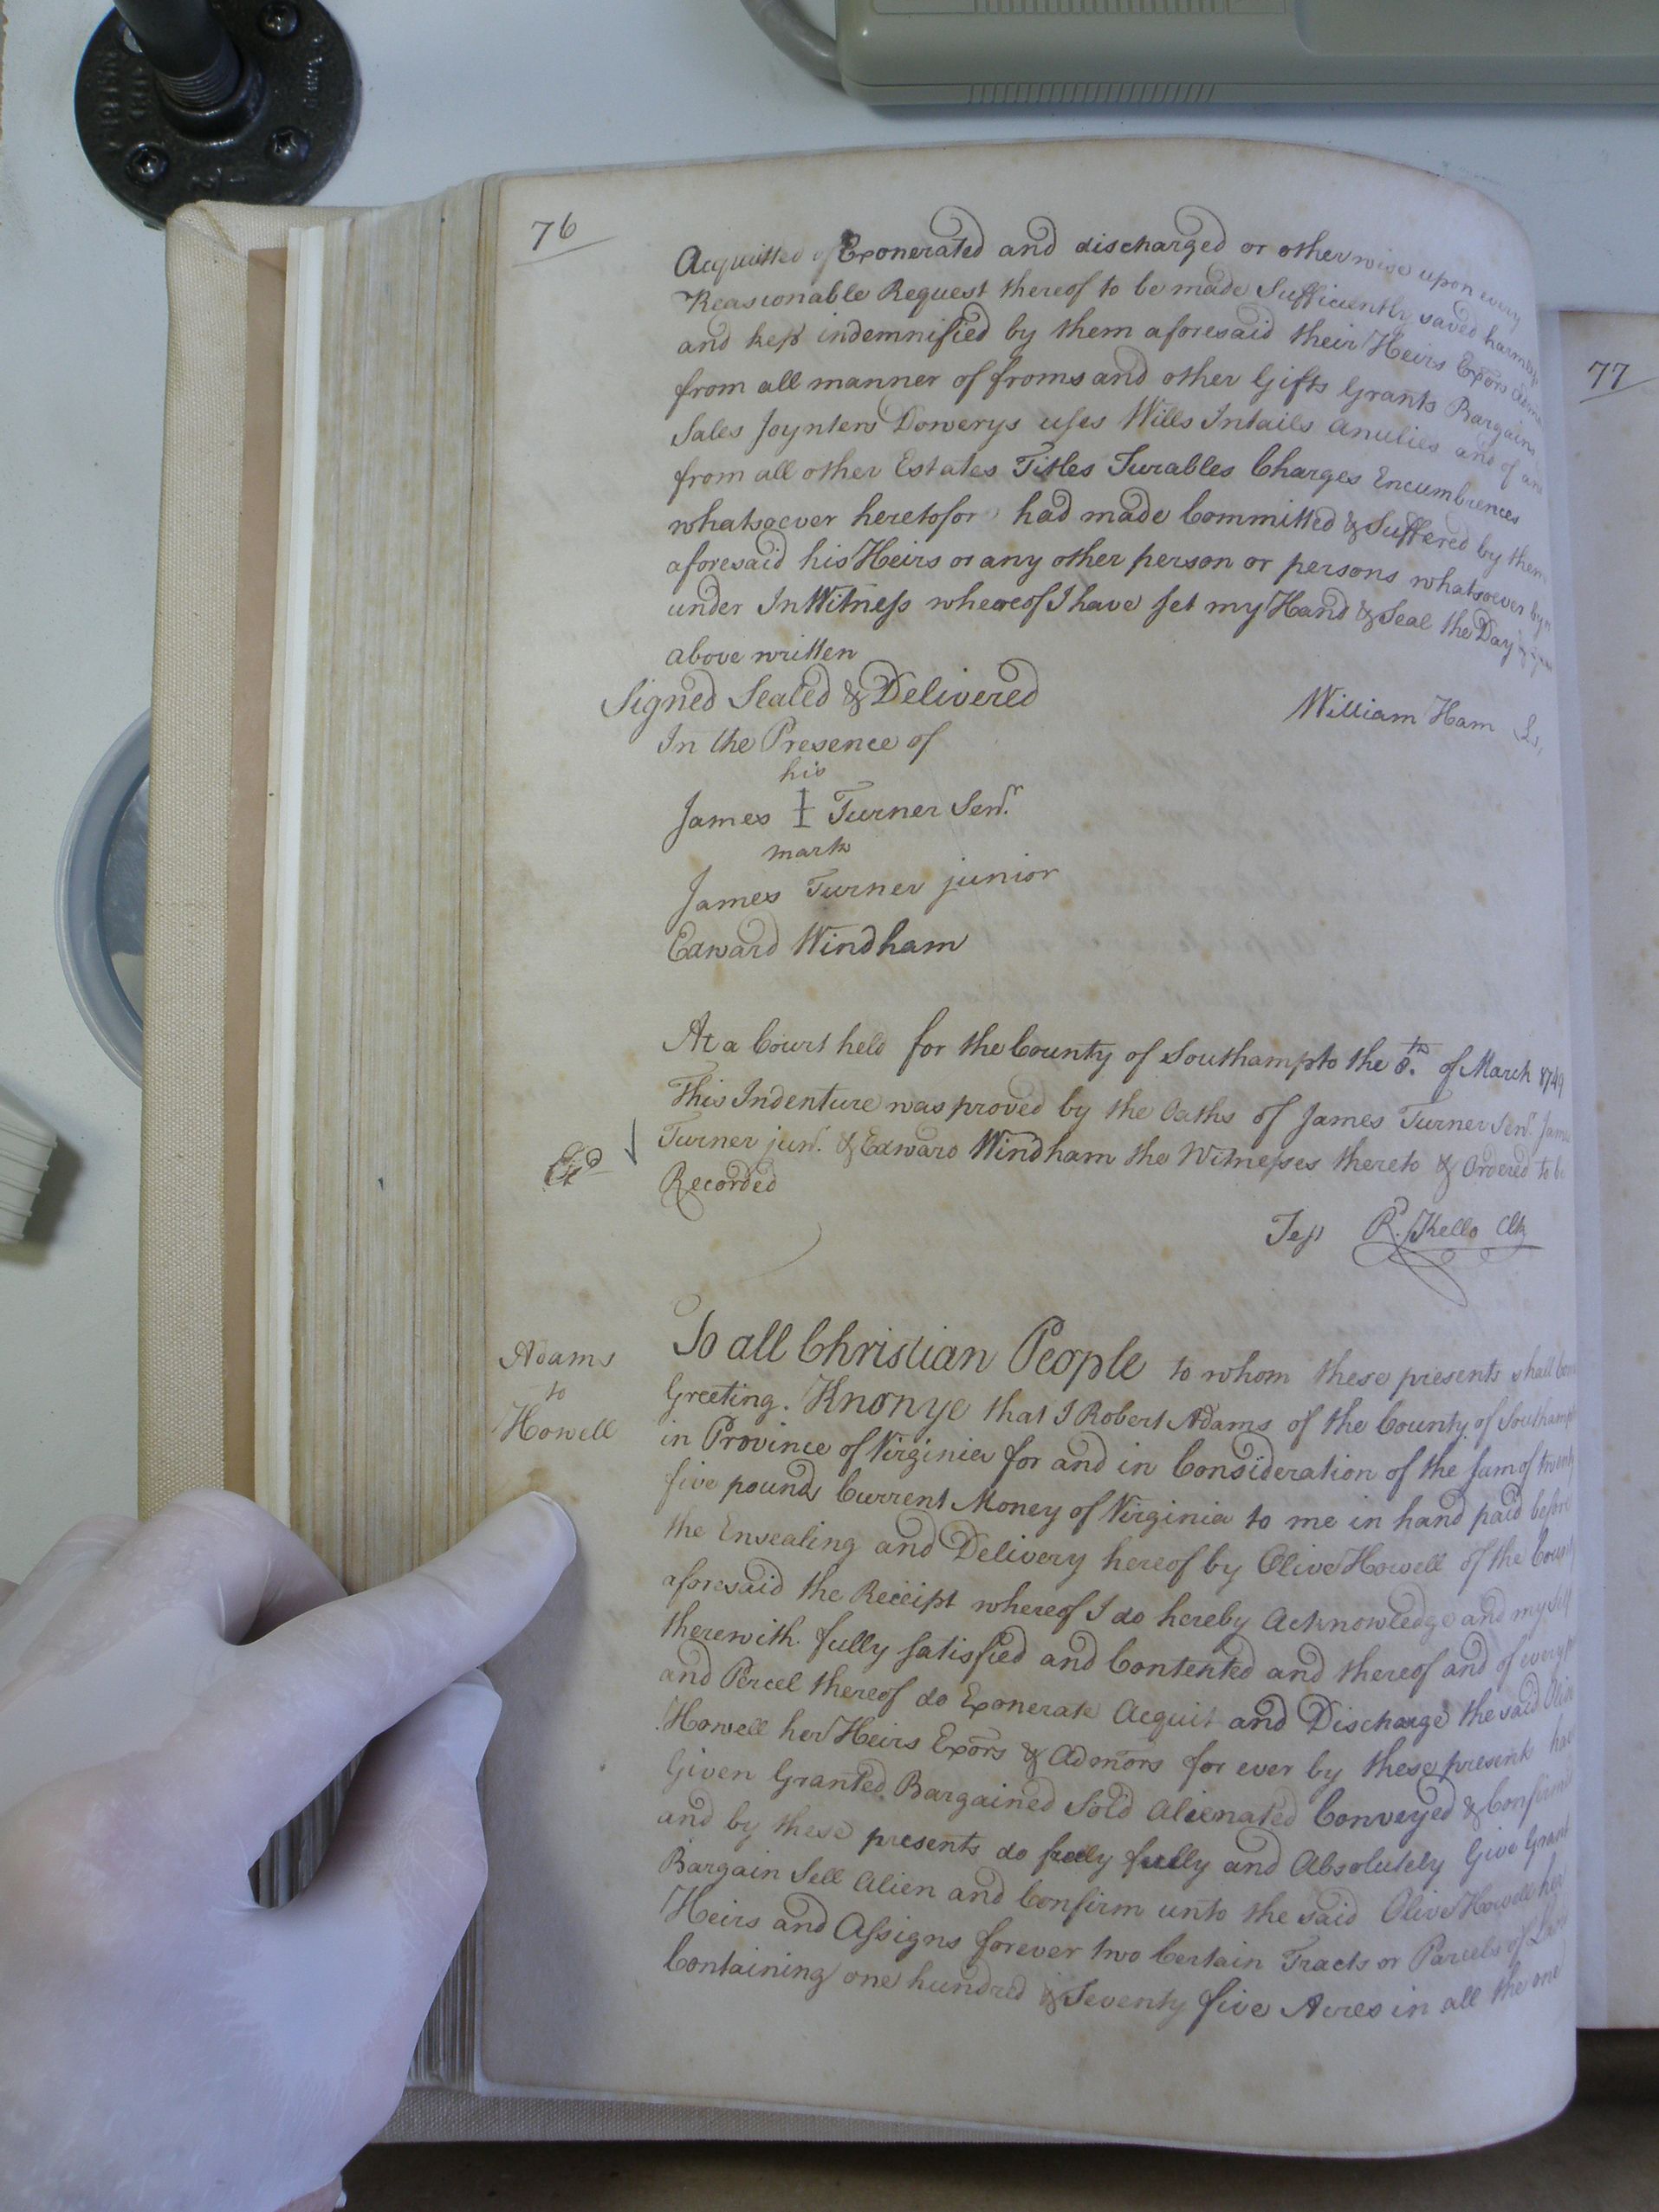 76
Acquitted Exonerated and discharged or otherwise upon every
Reasionable Request thereof to be made Sufficiently saved harmless
and kept indemnified by them aforesaid their Heirs Exors
from all manner of froms and other Gifts Grants Bargain
Sales Joynters Dowerys uses Wills Intails Anulies and of and
from all other Estates Titles Turables Charges Encumbrences
whatsoever heretofor had made Committed & Suffered by them
aforesaid his Heirs or any other person or persons whatsoever by
under In Witness whereof I have set my Hand & Seal the Day &
above written
Signed Sealed & Delivered
William Ham
In the Presence of
his
James I Turner Senr.
mark
James Turner junior
Edward Windham
At a Court held for the County of Southampto the 8th. of March 1749
This Indenture was proved by the Oaths of James Turner Senr. James
Turner junr. & Edward Windham the Witnesses thereto & Ordered to be
Recorded
Exd
Test R. Kello Clk
Adams
to
Howell
To all Christian People to whom these presents shall come
Greeting. Know ye that I Robert Adams of the County of Southampt
in Province of Virginia for and in Consideration of the Sum of twenty
five pounds Current Money of Virginia to me in hand paid before
the Ensealing and Delivery hereof by Olive Howell of the County
aforesaid the Receipt whereof I do hereby Acknowledge and my self
therewith fully satisfied and Contented and thereof and of every
and Percel thereof do Exonerate Acquit and Discharge the said Olive
Howell her Heirs Exors & Admors for ever by these presents have
Given Granted Bargained Sold Alienated Conveyed & Confirmed
and by these presents do freely fully and Absolutely Give Grant
Bargain Sell Alien and Confirm unto the said Olive Howell her
Heirs and Assigns forever two Certain Tracts or Parcels of Land
Containing one hundred & Seventy five Acres in all the one
77